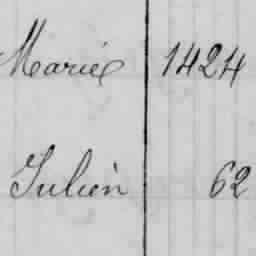 Marie 1424
Julien 62